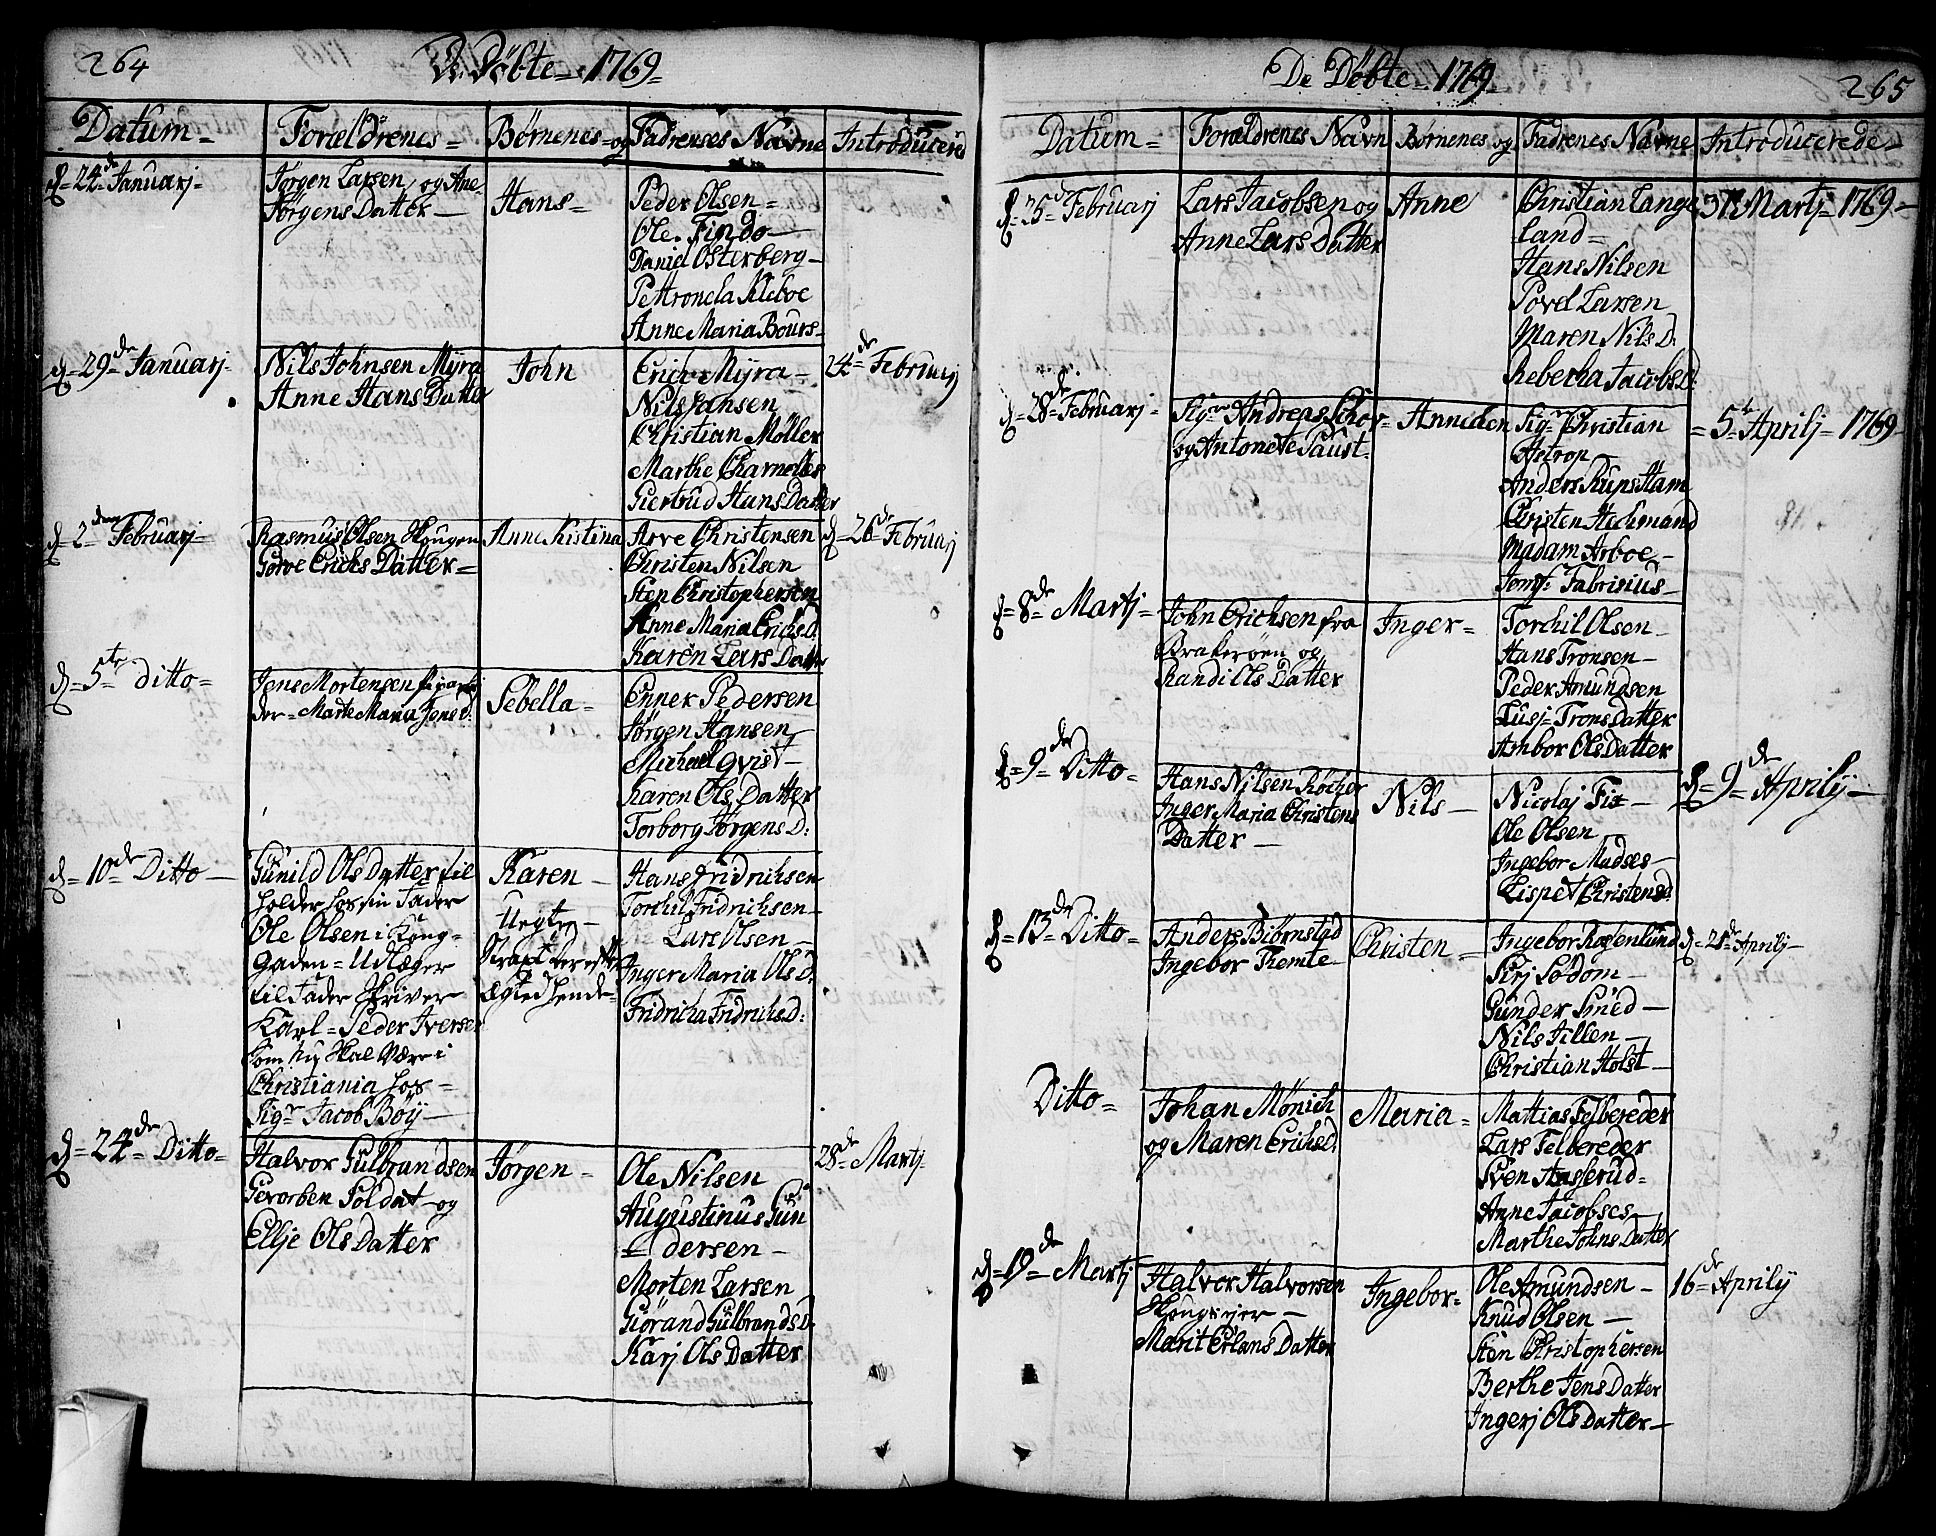 264
De Döbte = 1769 =
Datum = Forældrenes = Börnenes = og Fadrenes Navne Introducered
d = 24de Januarj =
Jörgen Larsen og Ane
Jörgens Datter —
Hans =
Peder Olsen =
Ole Findo —
Daniel Osterberg —
Pettronela Kleboe
Anne Maria Bours =
d = 29de Januarj =
Nils Johnsen Myra
Anne Hans Datter
John
Erich Myra —
Nils Jansen
Christian Möller
Marthe Charnelles
Giertrud Hans Datter
24de Februarj
d = 2den Februarj =
Rasmus Olsen Hougen
Gorve Erichs Datter =
Anne Kistina
Arve Christensen
Christen Nilsen
Sten Christophersen
Anne Maria Erichs D:
Karen Lars Datter
d = 26de Februarj
d = 5te ditto =
Jens Mortensen
der = Marte Maria Jens d.
Sebella =
Enner Pedersen
Jörgen Hansen
Michael Qvist —
Karen Ols Datter
Torborg Jörgens D:
d = 10de Ditto —
Gunild Ols Datter til
holder hos sin Fader
Ole Olsen i Kong =
gaden = Udlæger
til Fader Skriver
Karl = Peder Iversen
som nu skal være i
Christiania hos =
Sigr Jacob Böij —
Karen —
Uegte —
Strax derefter
Ægted hende =
Hans Fridrichsen
Torchil Fridrichsen —
Lars Olsen —
Inger Maria Ols D:
Fridricha Fridrichs D:
d = 24de Ditto =
Halvor Gulbrandsen
Gevorben Soldat og
Ellje Ols Datter
Jörgen =
Ole Nilsen
Augustinus Gun
= dersen =
Morten Larsen
Giörand Gulbrands D:
Karj Ols Datter
28de Martj =
De Döbte = 1769
265
Datum = Forældrenes Navn Börnenes og Fadrenes Navne Introducerede =
d = 25de Februarj
Lars Jacobsen og
Anne Lars Datter
Anne
Christian Lange
land =
Hans Nilsen
Povel Larsen
Maren Nils D:
Rebecka Jacobs D:
Martj = 1769 —
d = 28de Februarj =
Sigr Andreas Schov =
og Antonete Faust =
Anneken
Sigr Christian
Astrop —
Anders Rups Ham
Christen Heckmand
Madam Arboe —
Jomfr Fabrisius —
= 5te Aprilj = 1769
d = 8de Martj =
John Erichsen fra
Brakeröen og
Randi Ills Datter
Inger =
Torchil Olsen —
Hans Tronsen —
Peder Amundsen
Lusj = Trons Datter
Ambor Ols Datter
d = 9de Ditto =
Hans Nilsen Röcher
Inger Maria Christens
Datter —
Nils —
Nicolaj Fix —
Ole Olsen
Ingebor Madses —
Lispet Christens d.
d = 9de Aprilij —
d = 13de Ditto =
Anders Biörnstad
Ingebor Remte
Christen =
Ingebor Rosenlund
Sirj Södom —
Gunder Smed —
Nils Tillen —
Christian Holst —
d = 21de Aprilj —
Ditto =
Johan Mönich
og Maren Erichs d.
Maria =
Mattias Felbereder
Lars Felbereder
Sven Haserud =
Anne Jacobses —
Marthe Johns Datter
d = 19de Martj
Halvor Halvorsen
Hougsejer —
Marit Erlans Datter
Ingebor =
Ole Amundsen —
Knud Olsen —
Sten Christophersen
Berthe Jens Datter
Ingerj Ols Datter —
16de Aprilij